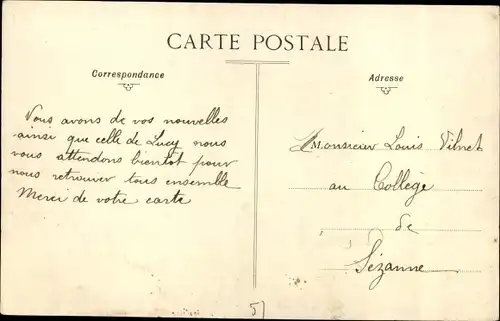 CARTE POSTALE
Correspondance
Adresse
Vous avons de vos nouvelles
ainsi que celle de Lucy nous
vous attendons bientot pour
nous retrouver tous ensemble
Merci de votre carte
Monsieur Louis Vilnet
au Collège
de
Sézanne
51